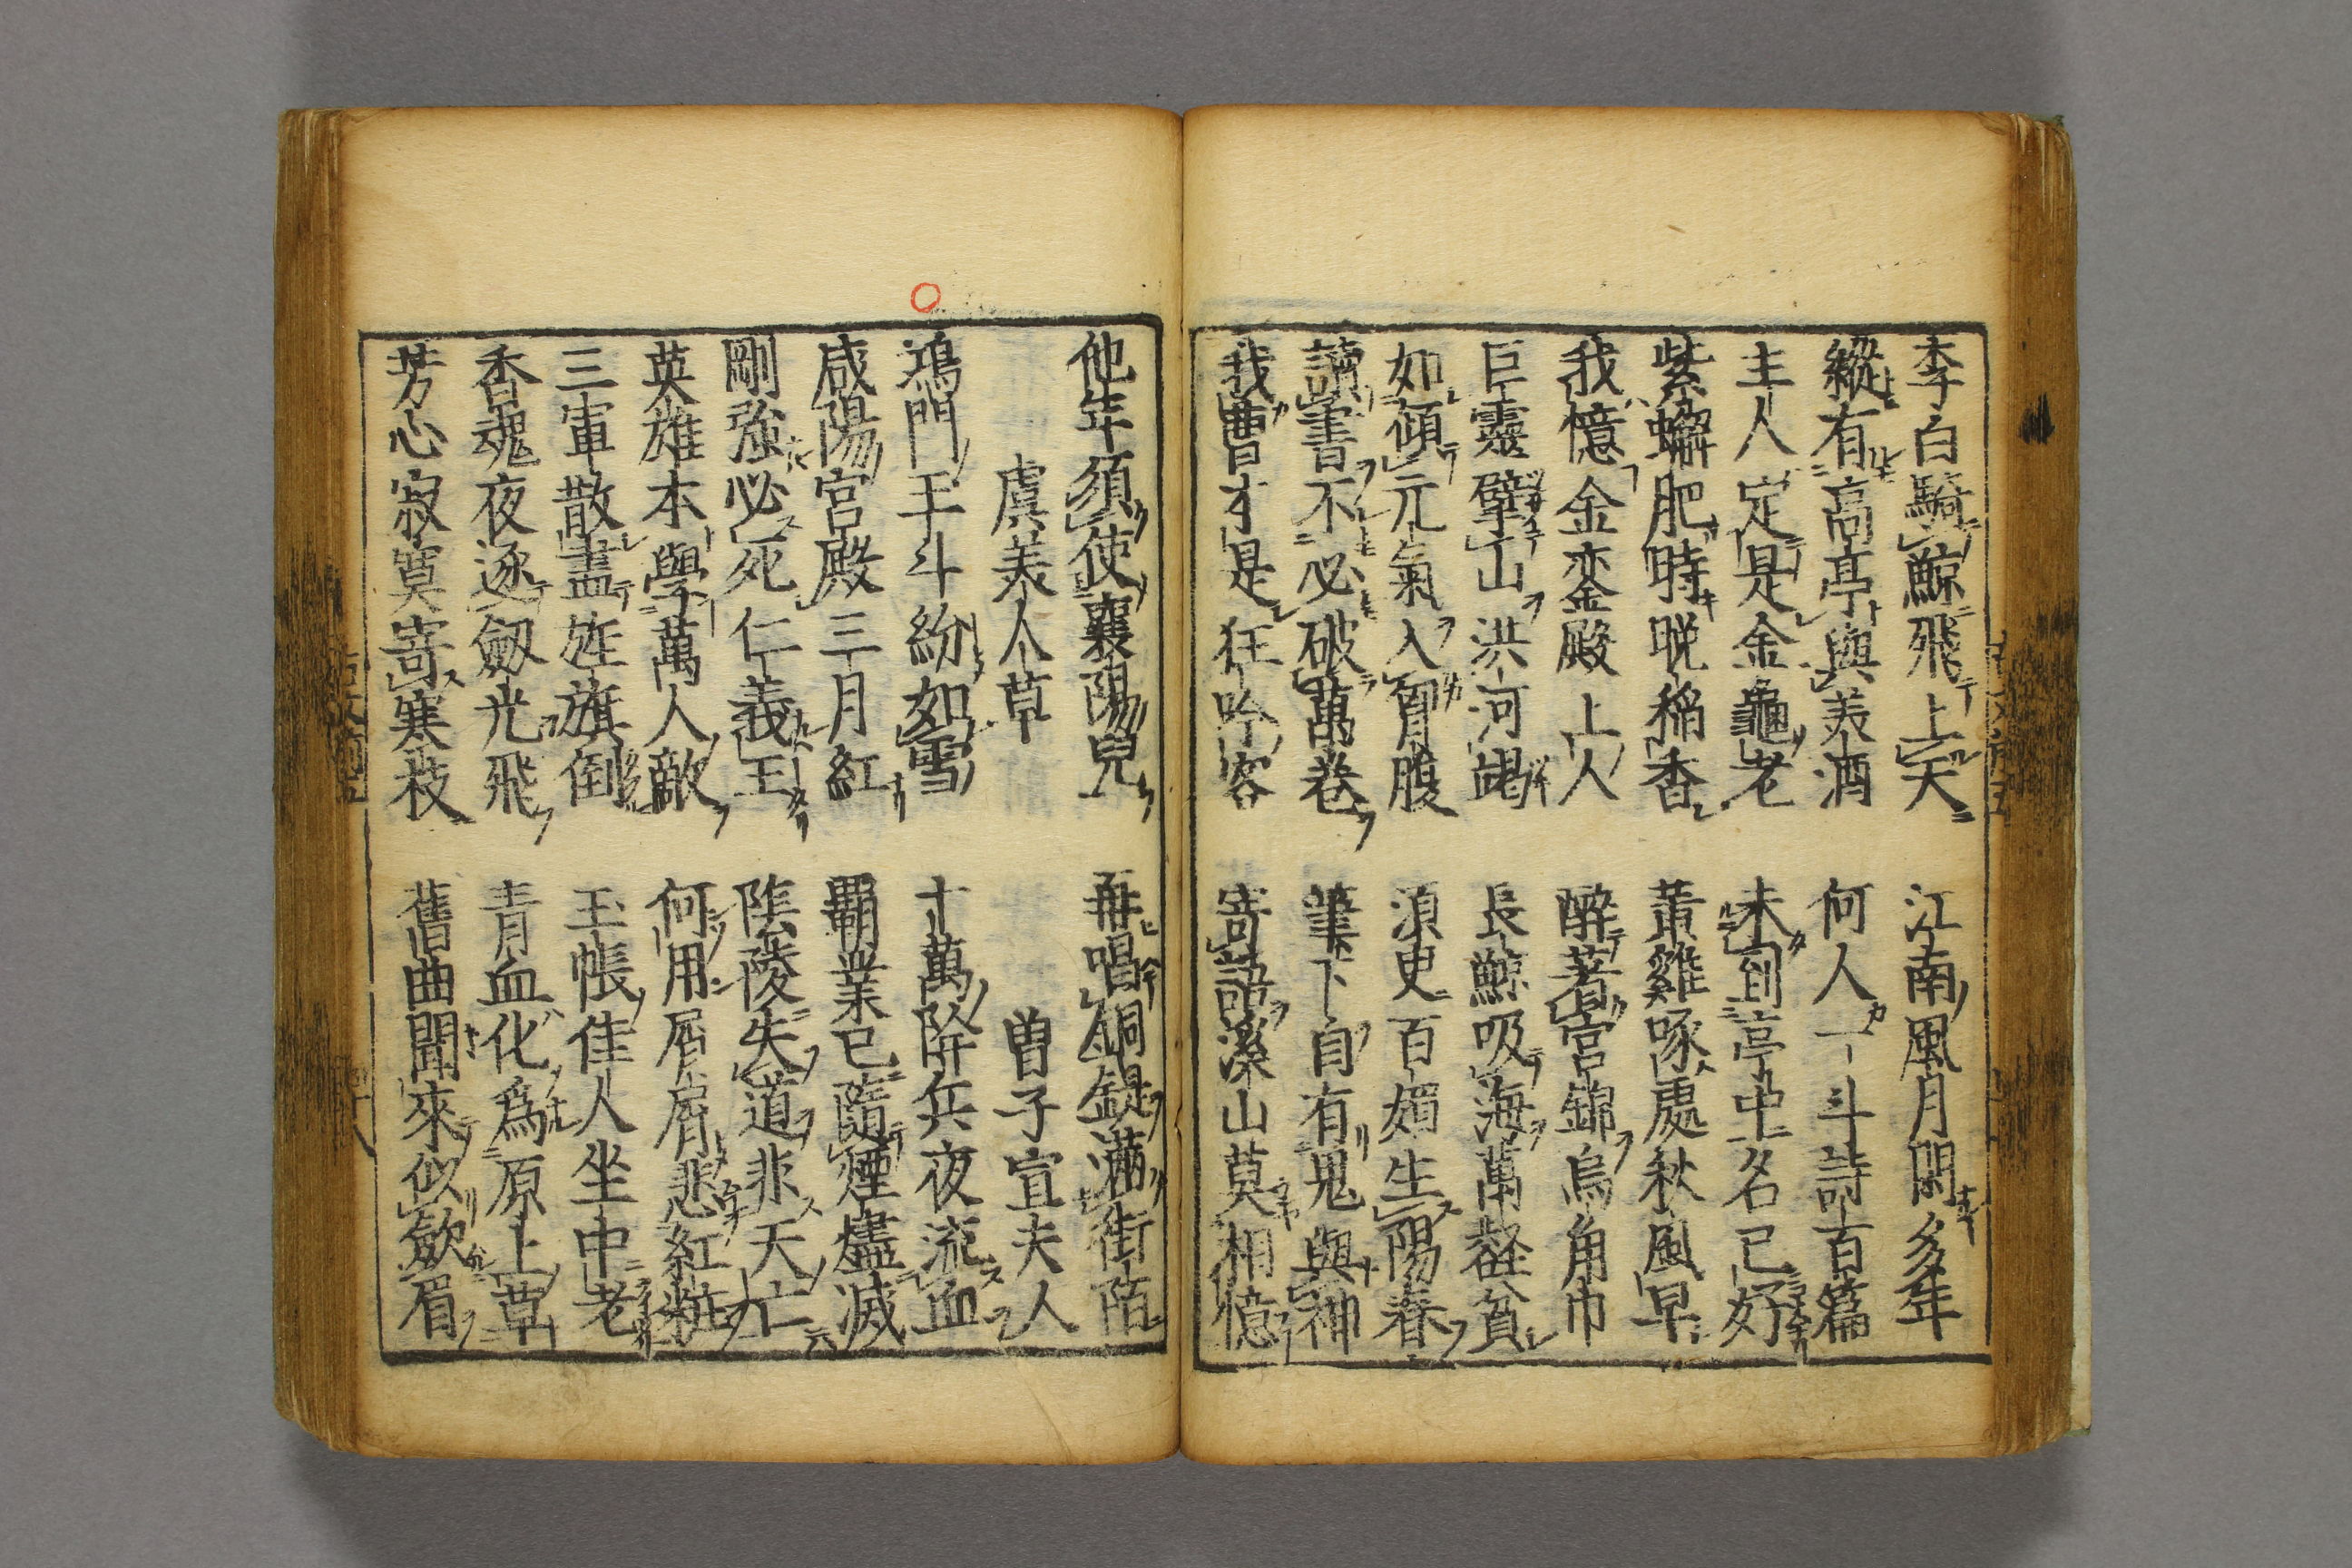 李白騎鯨飛上天　江南風月閑多年
縱有高亭與美酒　何人一斗詩百篇
主人定是金龜老　未到亭中名已好
紫蠏肥時晩稲香　黄雞啄處秋風早
我憶金鑾殿上人　醉著宮錦烏角巾
巨靈擘山洪河竭　長鯨吸海萬壑貧
如傾元氣入胷腹　湏叟百媚生陽春
讀書不必破萬卷　筆下自有鬼與神
我曹才是狂吟客　寄語溪山莫相憶
他年須使襄陽兒　再唱銅鍉滿街陌
虞美人草　曽子宣夫人
鴻門玉斗紛如雪　十萬降兵夜流血
咸陽宮殿三月紅　覇業已隨煙燼滅
剛強必死仁義王　陰陵失道非天亡
英雄本學萬人敵　何用屑屑悲紅粧
三軍散盡旌旗倒　玉帳佳人坐中老
香魂夜逐劔光飛　青血化爲原上草
芳心寂寞寄寒枝　舊曲聞來似歛眉